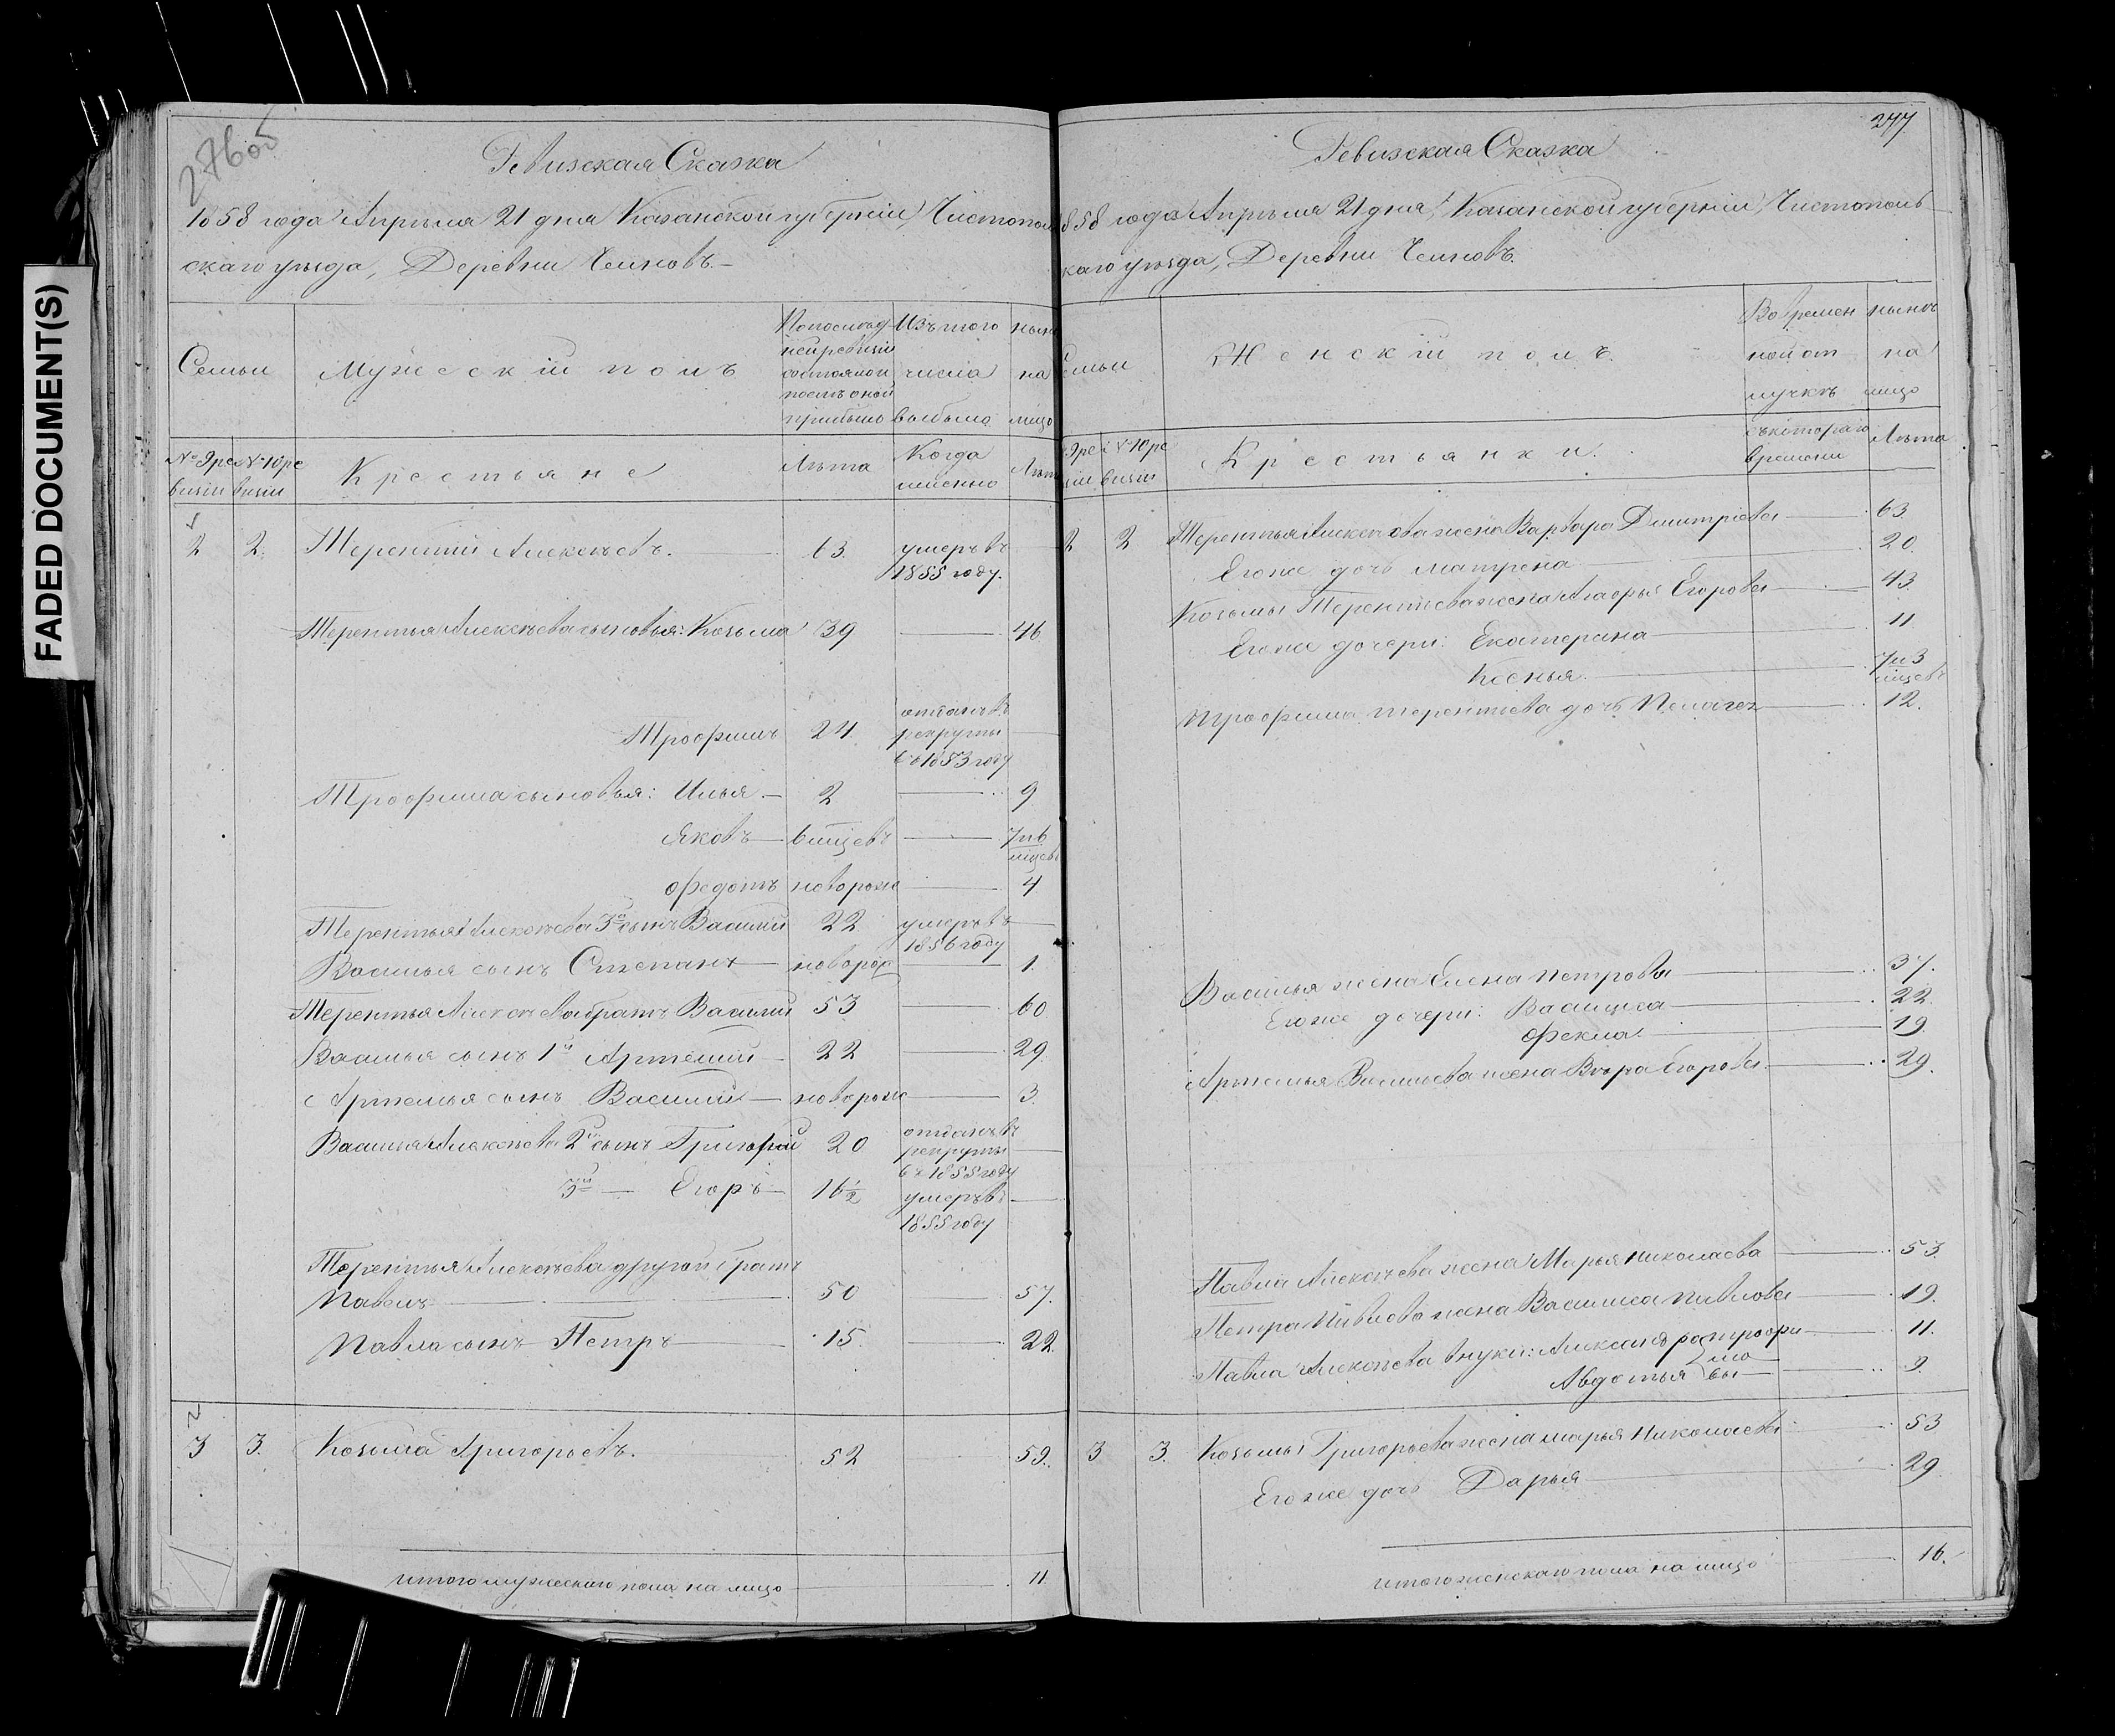 FADED DOCUMENT(S)
276об
Ревизская Сказка
1858 года Апрѣля 21 дня Казанской губерніи, Чистополь
скаго уѣзда, Деревни
Семьи
Мужескій полъ
По послѣд
ней ревизіи
состояло и
послѣ оной
прибыло
Изъ того
числа
выбыло
нынѣ
на
лицо
№ 9 ре
визіи
№ 10 ре
визіи
Крестьяне
Лѣта
Когда
именно
Лѣта
1
2 2. Терентій Алексѣевъ. 63. умеръ въ
1855 году.
Терентья Алексѣева сыновья: Козьма 39 46
Трофимъ 24. отданъ въ
рекруты
въ 1853 году
Трофима сыновья: Илья 2 9
Яковъ 6 мцевъ 7 и 6
мцевъ
Федотъ новорож 4
Терентья Алексѣева 3й сынъ Василій 22 умеръ въ
1856 году
Василья сынъ Степанъ новорож 1.
Терентья Алексѣева братъ Василій 53 60
Василья сынъ 1й Артемій 22 29.
Артемья сынъ Василій новорож 3.
Василья Алексѣева 2й сынъ Григорій 20 отданъ въ
рекруты
въ 1855 году
3й Егоръ 16½ умеръ въ
1855 году
Терентья Алексѣева другой братъ
Павелъ 50 57.
Павла сынъ Петръ 15. 22.
2
3 3. Козьма Григорьевъ. 52 59.
итого мужескаго пола на лицо 11
277
Ревизская Сказка
1858 года Апрѣля 21 дня, Казанской губерніи, Чистополь
скаго уѣзда, Деревни
Семьи
Женскій полъ.
Во времен
ной от
лучкѣ
нынѣ
на
лицо
9 ре
визіи
№ 10 ре
визіи
Крестьянки.
съ котораго
времени
Лѣта
2 2 Терентья Алексѣева жена Варвара Дмитріева 63.
Его же дочь Матрена 20.
Козьмы Терентьева жена Егорова 43.
Его же дочери: Екатерина 11
Ксенья. 7 и 3
мцевъ
Трофима Терентьева дочь Пелагея 12.
Василья жена Елена Петрова 37.
Его же дочери: Василиса 22.
Фекла 19
Артемья Васильева жена Вѣра Егорова. 29.
Павла Алексѣева жена Марья Николаева 53.
Петра Павлова жена Василиса Павлова 19.
Павла Алексѣева внуки: Александра Трофи 11.
Авдотья мо
вы 9.
3 3. Козьмы Григорьева жена Марья Николаева 53
Его же дочь Дарья 29.
итого женскаго пола на лицо 16.